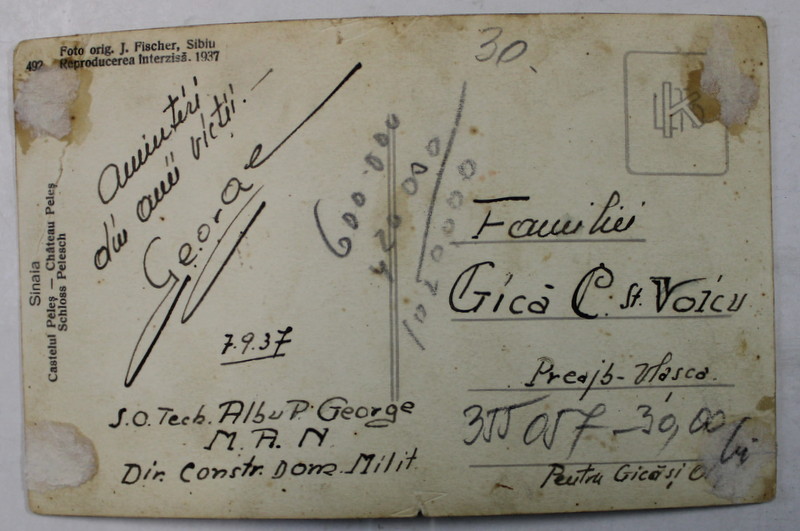 Foto orig. J. Fischer, Sibiu
492 Reproducerea interzisă. 1937
Sinaia
Castelul Peleș — Château Peleș
Schloss Pelesch
amintiri
din anii
George
7.9.37
S.O. Tech. Albu P. George
M. A. N
Dir. Constr. Dom. Milit.
30.
600.000
420 000
1020000
Familiei
Gică C. St. Voicu
Preajb - Vlașca.
355 057 - 30,00
Pentru Gică și